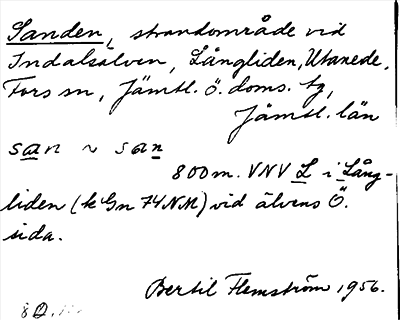 Sanden, strandområde vid
Indalsälven, Långliden, Utanede,
Fors sn, Jämtl. ö. doms. tg,
Jämtl. län
san ~ san
800 m. VNV L i Lång-
liden (k Gn 74 NM) vid älvens Ö.
sida.
Bertil Flemström 1956.